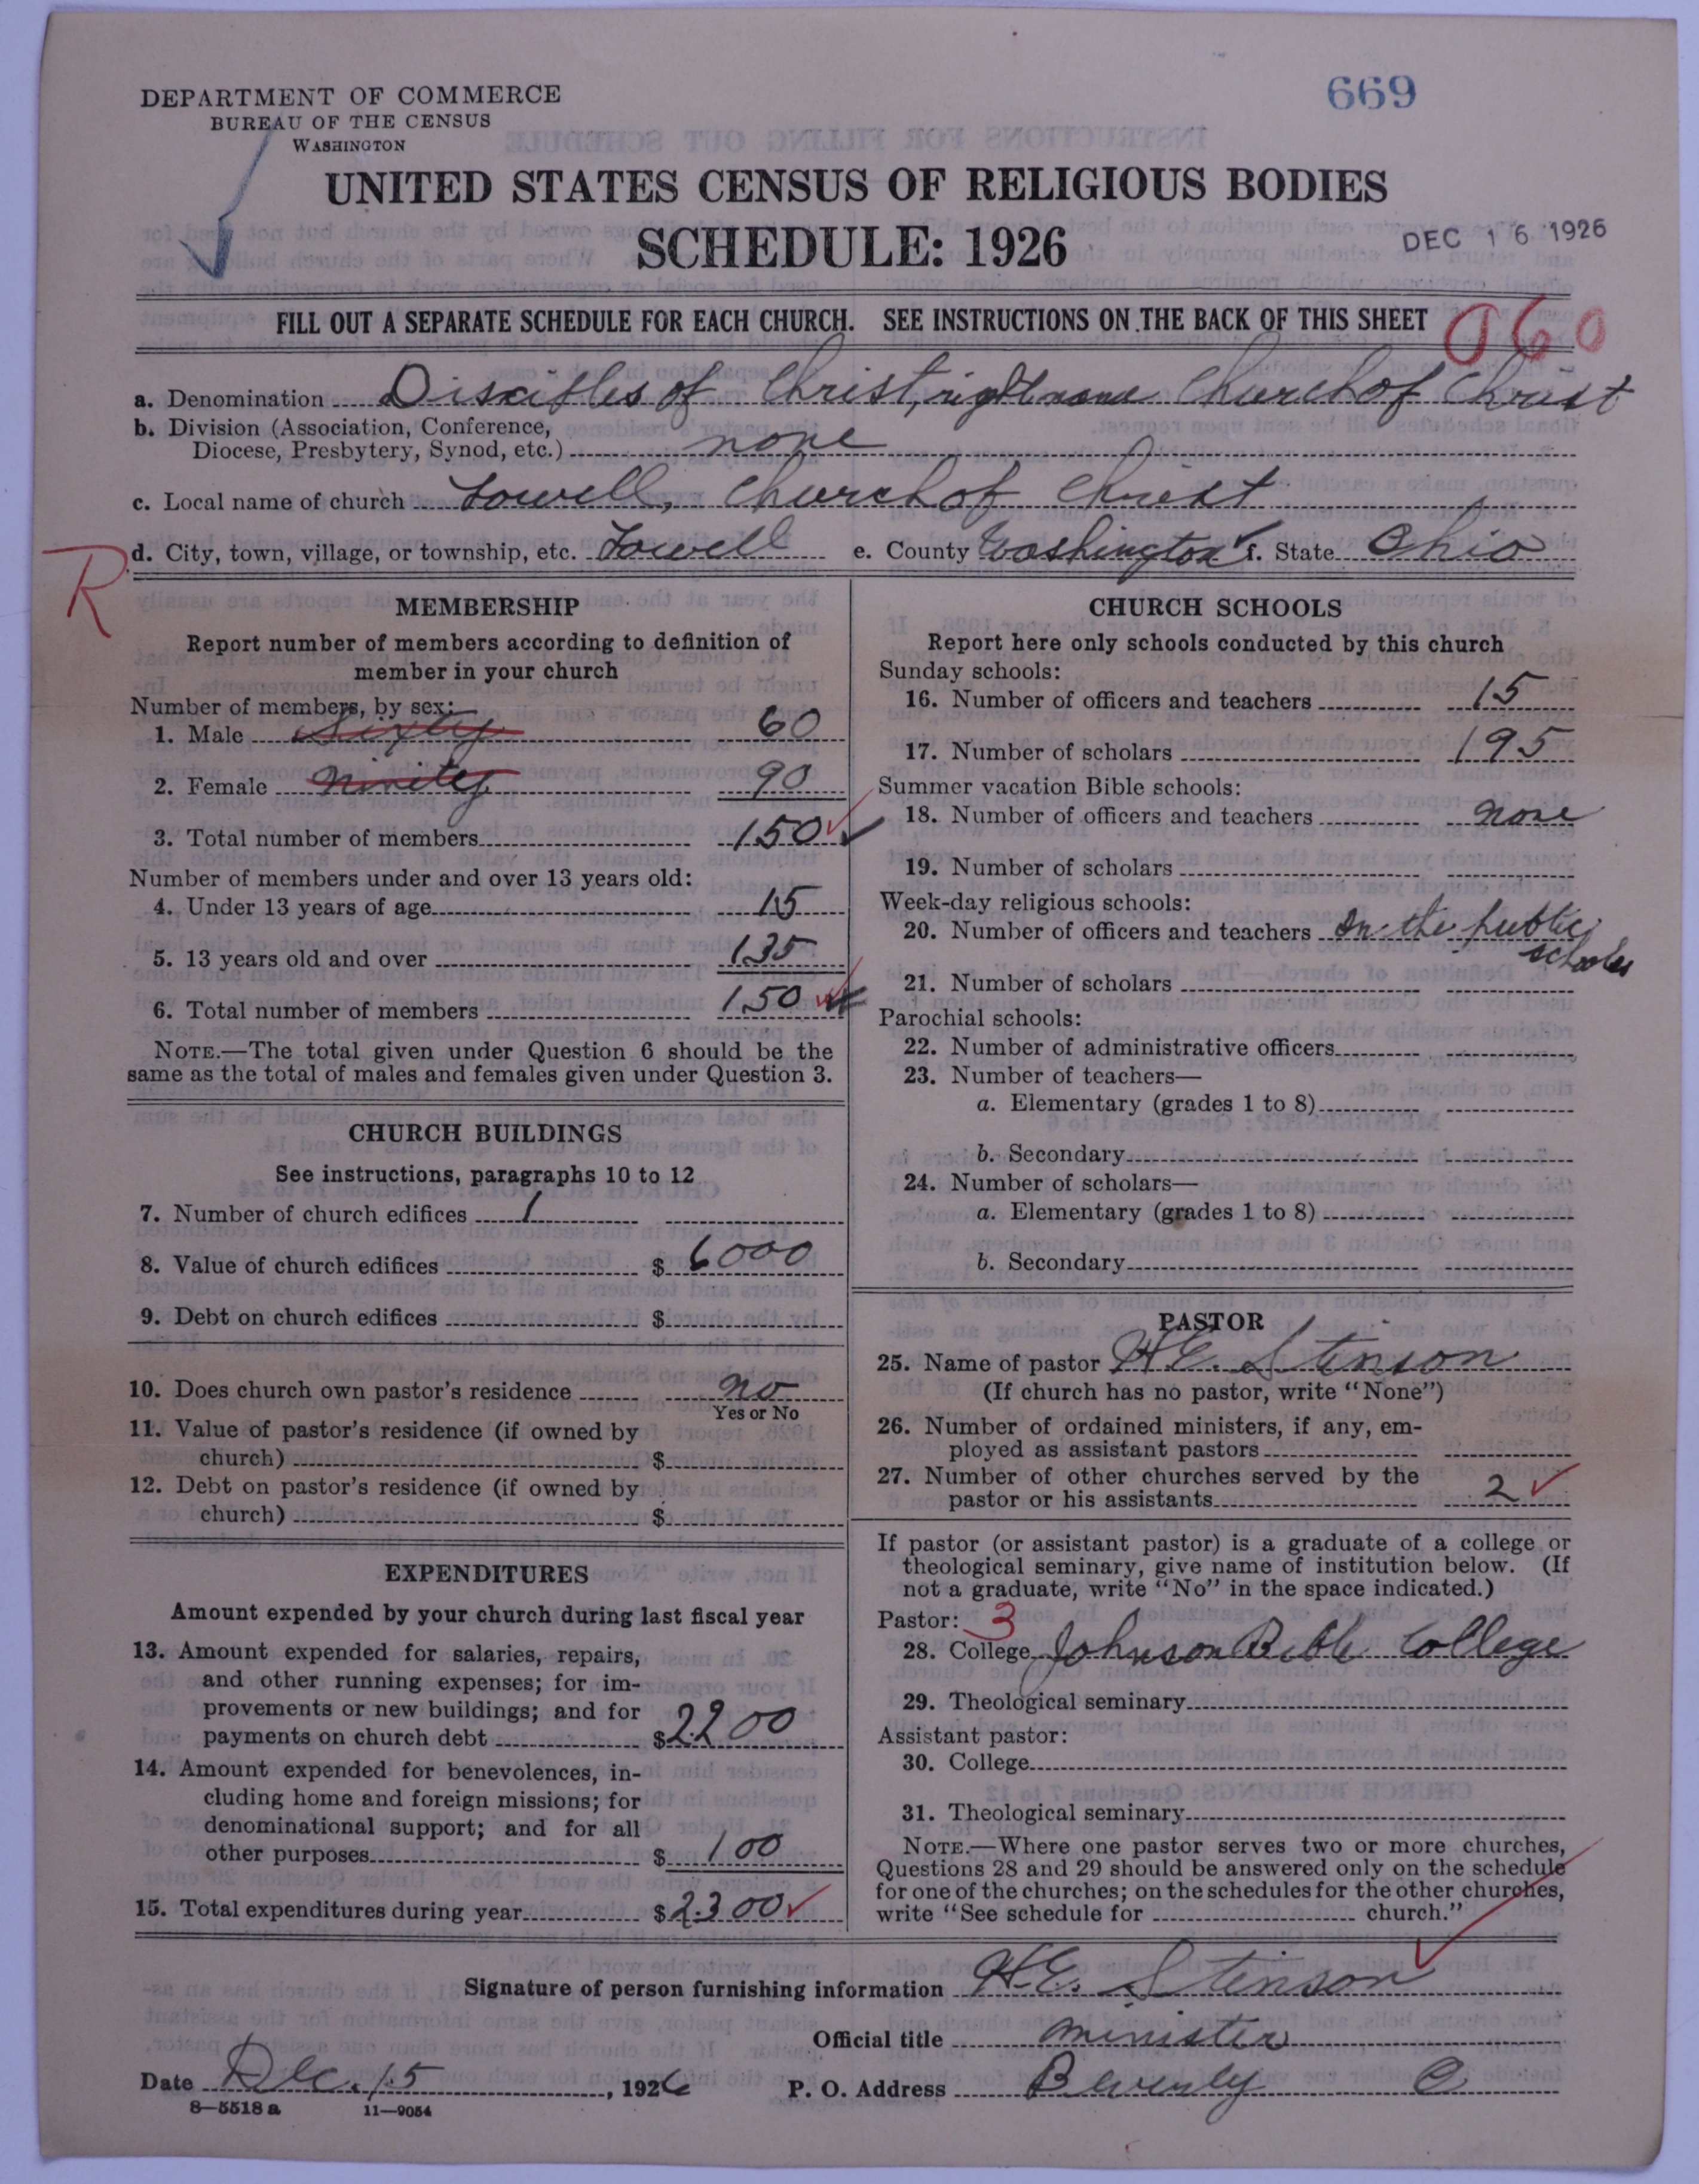 669
DEPARTMENT OF COMMERCE
BUREAU OF THE CENSUS
WASHINGTON
UNITED STATES CENSUS OF RELIGIOUS BODIES
SCHEDULE: 1926
DEC 16 1926
FILL OUT A SEPARATE SCHEDULE FOR EACH CHURCH. SEE INSTRUCTIONS ON THE BACK OF THIS SHEET
060
a. Denomination Disciples of Christ, right name Church of Christ
b. Division (Association, Conference,
Diocese, Presbytery, Synod, etc.) none
c. Local name of church Lowell, Church of Christ
R
d. City, town, village, or township, etc. Lowell e. County Washington f. State Ohio
MEMBERSHIP
Report number of members according to definition of
member in your church
Number of members, by sex:
1. Male Sixty 60
2. Female Ninity 90
3. Total number of members 150
Number of members under and over 13 years old:
4. Under 13 years of age 15
5. 13 years old and over 135
6. Total number of members 150
NOTE.—The total given under Question 6 should be the
same as the total of males and females given under Question 3.
CHURCH BUILDINGS
See instructions, paragraphs 10 to 12
7. Number of church edifices 1
8. Value of church edifices $ 6000
9. Debt on church edifices $
10. Does church own pastor's residence no
Yes or No
11. Value of pastor's residence (if owned by
church) $
12. Debt on pastor's residence (if owned by
church) $
EXPENDITURES
Amount expended by your church during last fiscal year
13. Amount expended for salaries, repairs,
and other running expenses; for im-
provements or new buildings; and for
payments on church debt $ 2200
14. Amount expended for benevolences, in-
cluding home and foreign missions; for
denominational support; and for all
other purposes $ 100
15. Total expenditures during year $ 2300
CHURCH SCHOOLS
Report here only schools conducted by this church
Sunday schools:
16. Number of officers and teachers 15
17. Number of scholars 195
Summer vacation Bible schools:
18. Number of officers and teachers none
19. Number of scholars
Week-day religious schools:
20. Number of officers and teachers In the public
schools
21. Number of scholars
Parochial schools:
22. Number of administrative officers
23. Number of teachers—
a. Elementary (grades 1 to 8)
b. Secondary
24. Number of scholars—
a. Elementary (grades 1 to 8)
b. Secondary
PASTOR
25. Name of pastor H.E. Stinson
(If church has no pastor, write "None")
26. Number of ordained ministers, if any, em-
ployed as assistant pastors
27. Number of other churches served by the
pastor or his assistants 2
If pastor (or assistant pastor) is a graduate of a college or
theological seminary, give name of institution below. (If
not a graduate, write "No" in the space indicated.)
Pastor: 3
28. College Johnson Bible College
29. Theological seminary
Assistant pastor:
30. College
31. Theological seminary
NOTE.—Where one pastor serves two or more churches,
Questions 28 and 29 should be answered only on the schedule
for one of the churches; on the schedules for the other churches,
write "See schedule for church."
Signature of person furnishing information H.E. Stinson
Official title minister
Date Dec. 15, 1926 P. O. Address Beverly O
8—5518 a 11—9054